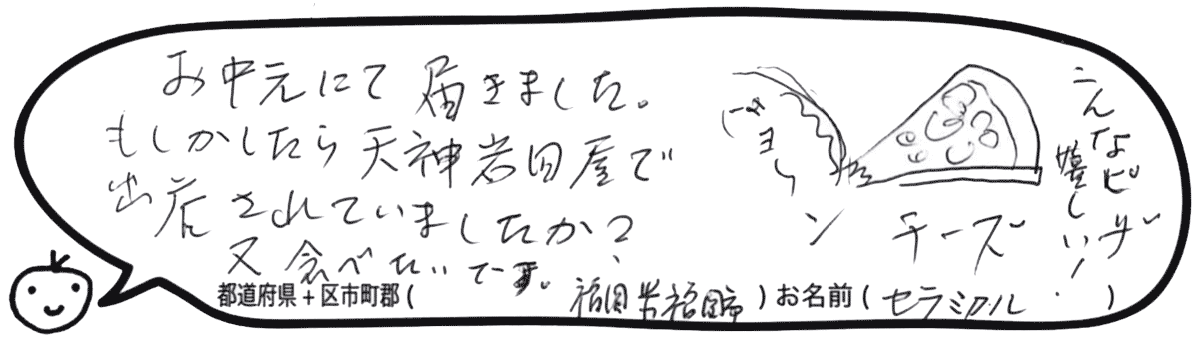 お中元にて届きました。
もしかしたら天神岩田屋で
出店されていましたか?
又食べたいです。
ビヨーン
チーズ
こんなピザ
嬉しい!
都道府県+区市町郡(福岡県福岡市)お名前(セラミカル)